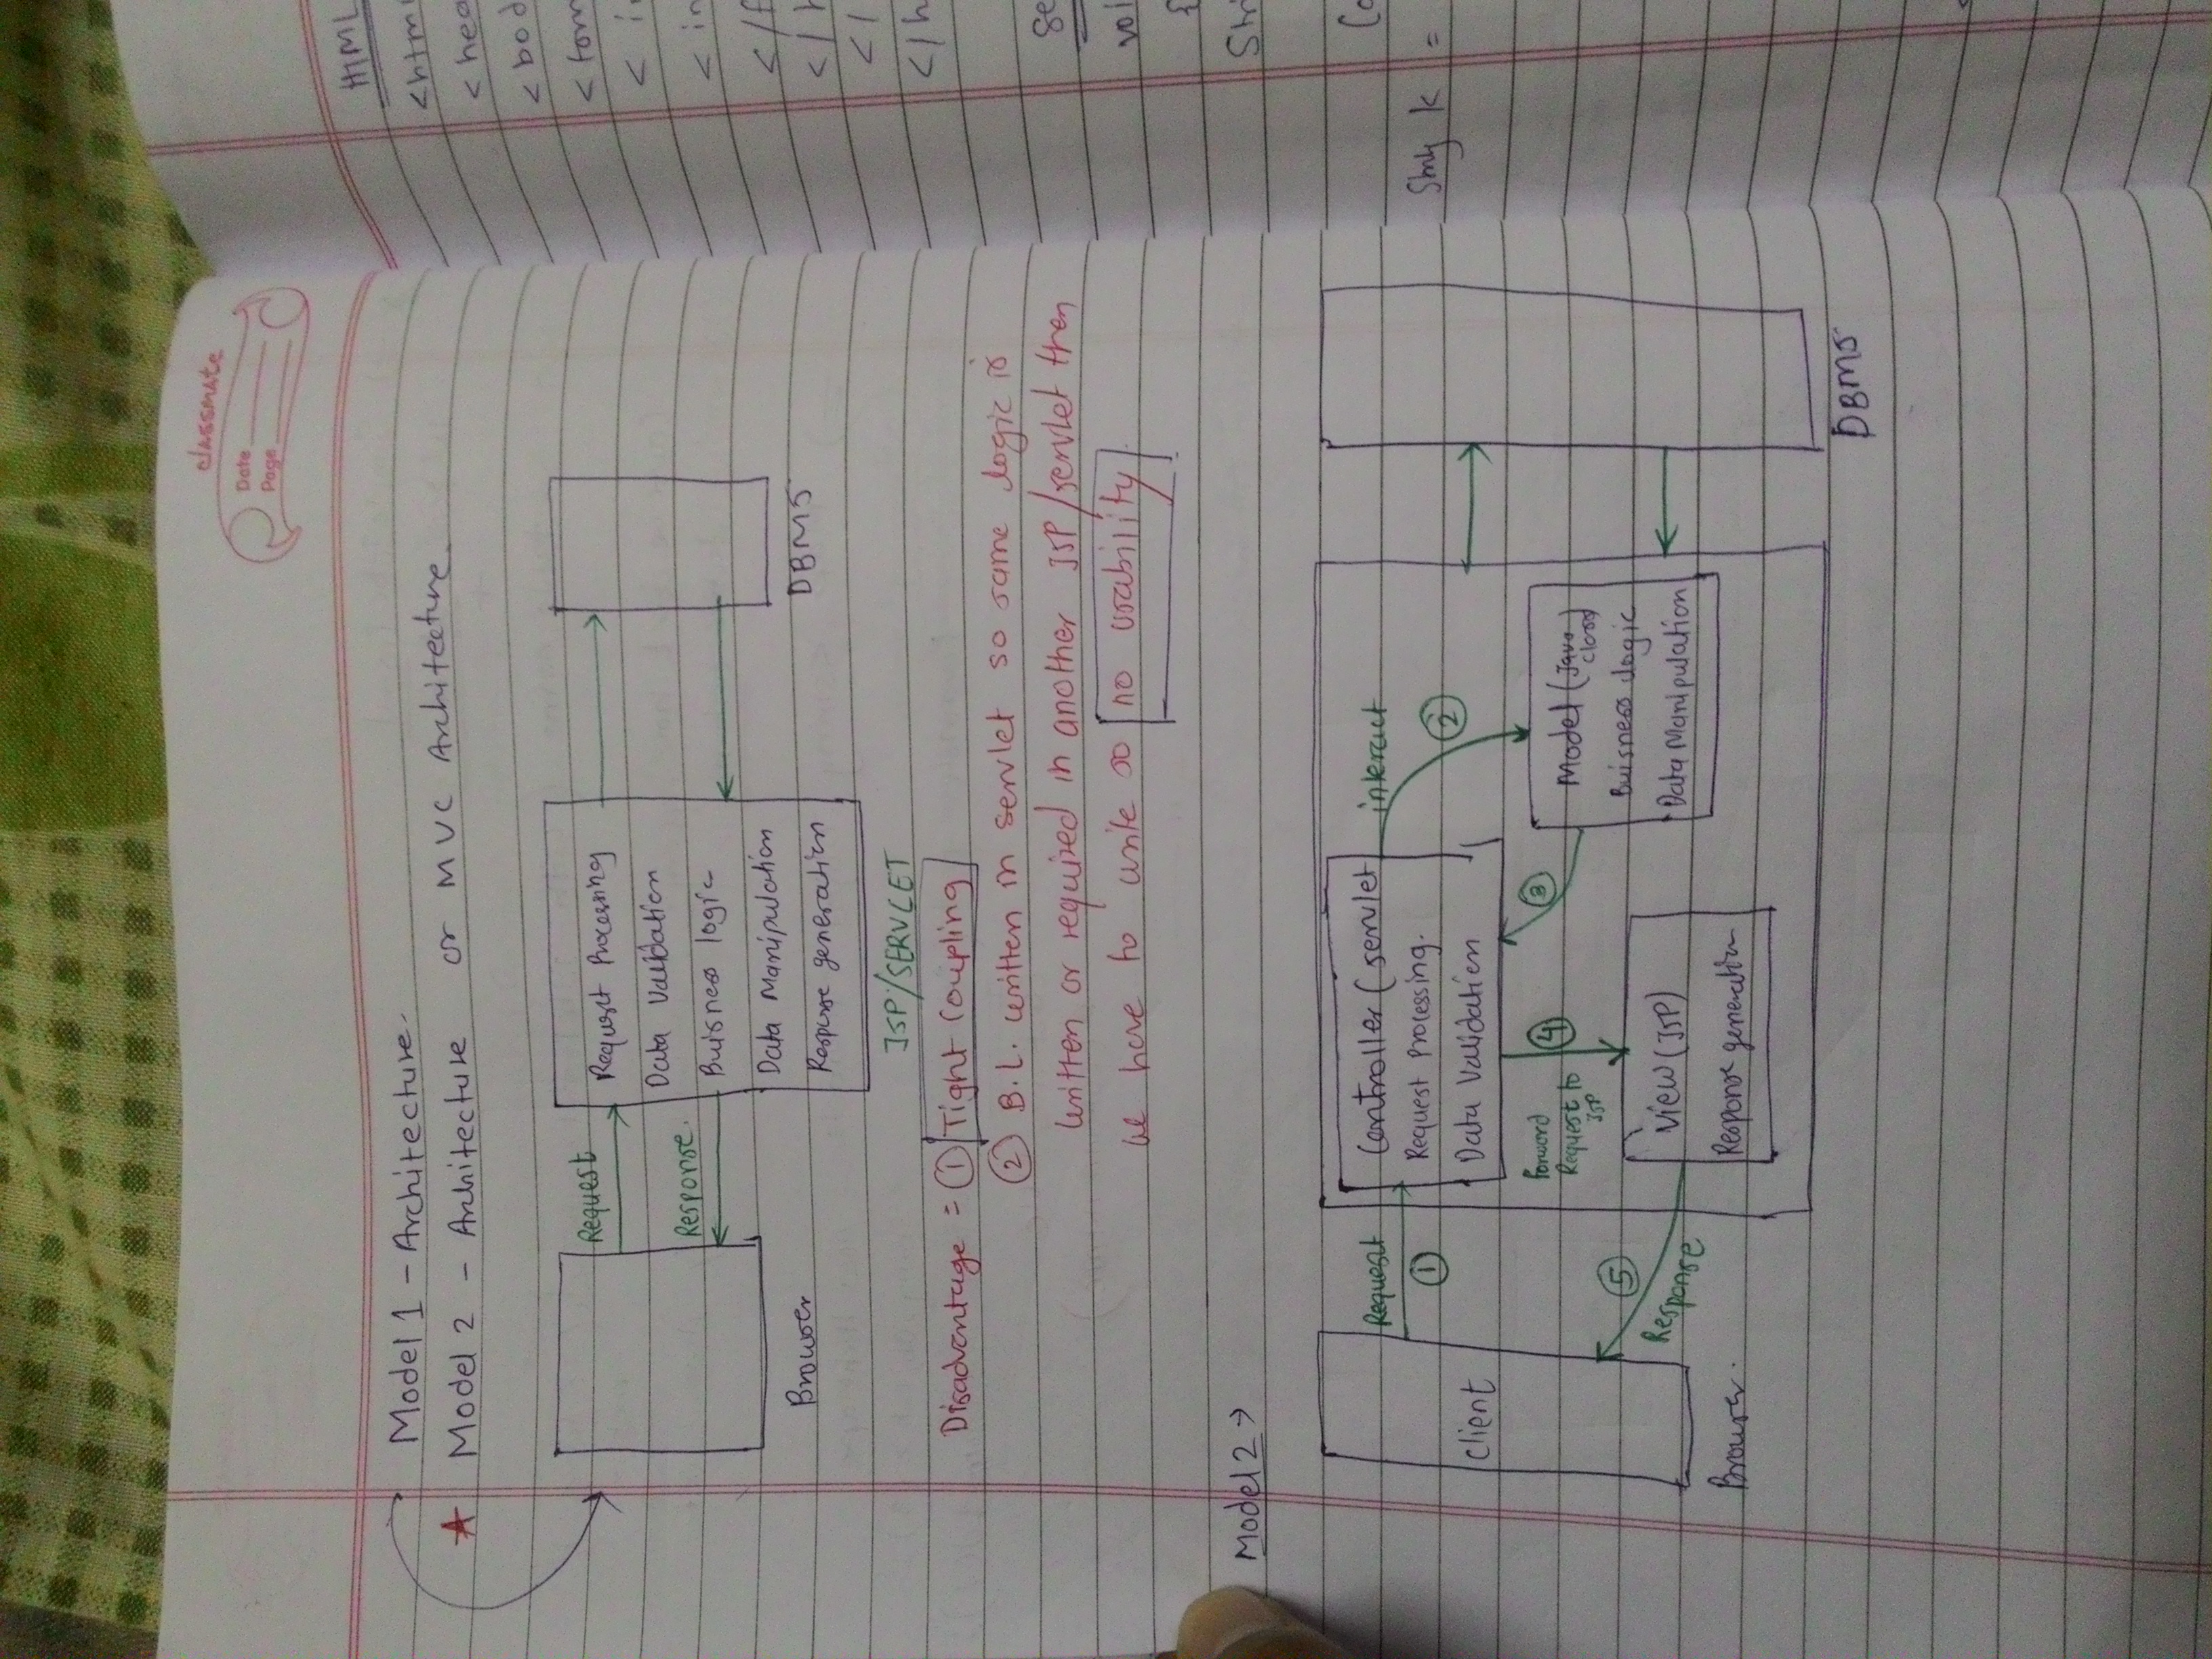 classmate
Date
Page
Model 1 - Architecture.
Model 2 - Architecture or MVC Architecture
Request
Request Processing
Data Validation
Response.
Buisness logic
Data Manipulation
Response generation
Browser
DBMS
JSP/SERVLET
Disadvantage = ① Tight Coupling
② B.L. written in servlet so same logic is
written or required in another JSP/servlet then
we have to write so no usability
Model 2 →
Controller (servlet
Request
①
Request Processing.
Data Validation
interact
②
Client
③
Forward
Request to
JSP
④
Model (Java
class)
Buisness logic
Data Manipulation
⑤
Response
View (JSP)
Response generation
Browser.
DBMS
HTML
<htm
<hea
<bod
<form
< i
< in
</f
</h
</
</h
Se
voi
{
Stri
Co
k =